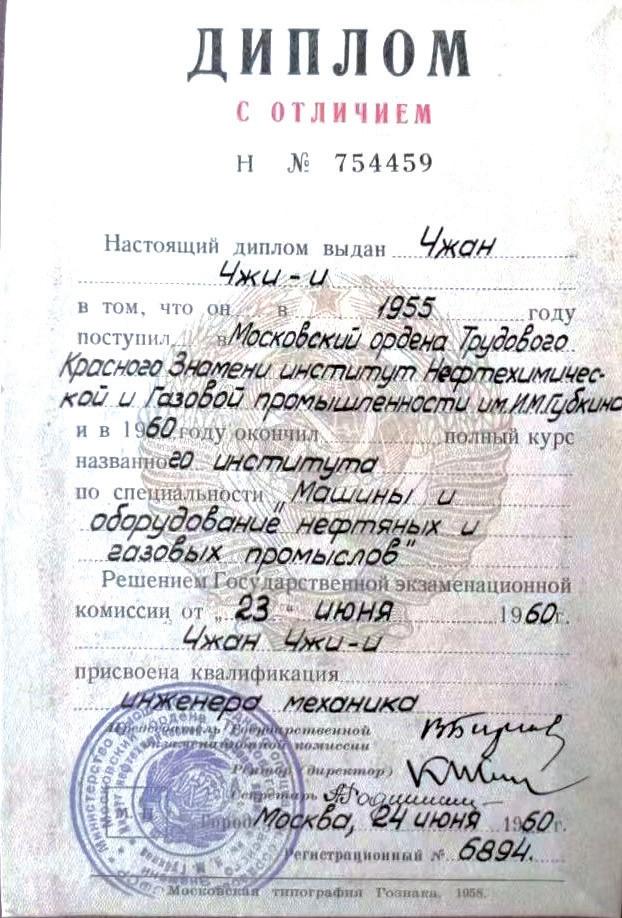 ДИПЛОМ
С ОТЛИЧИЕМ
Н № 754459
Настоящий диплом выдан Чжан
Чжи-и
в том, что он в 1955 году
поступил в Московский ордена Трудового
Красного Знамени институт Нефтехимичес-
кой и Газовой промышленности им. И.М. Губкина
и в 1960 году окончил полный курс
названного института
по специальности "Машины и
оборудование нефтяных и
газовых промыслов"
Решением Государственной экзаменационной
комиссии от "23" июня 1960 г.
Чжан Чжи-и
присвоена квалификация
инженера механика
Председатель Государственной
экзаменационной комиссии
Ректор (директор)
Секретарь
М. П. Город Москва, 24 июня 1960 г.
Регистрационный № 6894.
Московская типография Гознака, 1958.